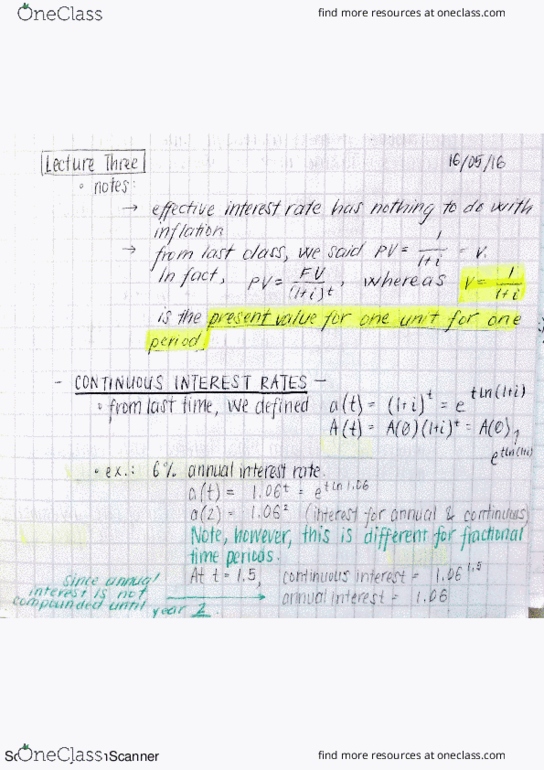 OneClass
find more resources at oneclass.com
Lecture Three
16/05/16
• notes:
→ effective interest rate has nothing to do with
inflation
→ from last class, we said PV = 1/(1+i) = v.
In fact, PV = FV/(1+i)^t, whereas v = 1/(1+i)
is the present value for one unit for one
period.
- CONTINUOUS INTEREST RATES -
• from last time, we defined a(t) = (1+i)^t = e^(t ln(1+i))
A(t) = A(0)(1+i)^t = A(0)
e^(t ln(1+i))
• ex.: 6% annual interest rate.
a(t) = 1.06^t = e^(t ln 1.06)
a(2) = 1.06² (interest for annual & continuous)
Note, however, this is different for fractional
time periods.
At t = 1.5, continuous interest = 1.06^1.5
since annual
interest is not
compounded until
year 2
→ annual interest = 1.06
OneClass
Scanner
find more resources at oneclass.com